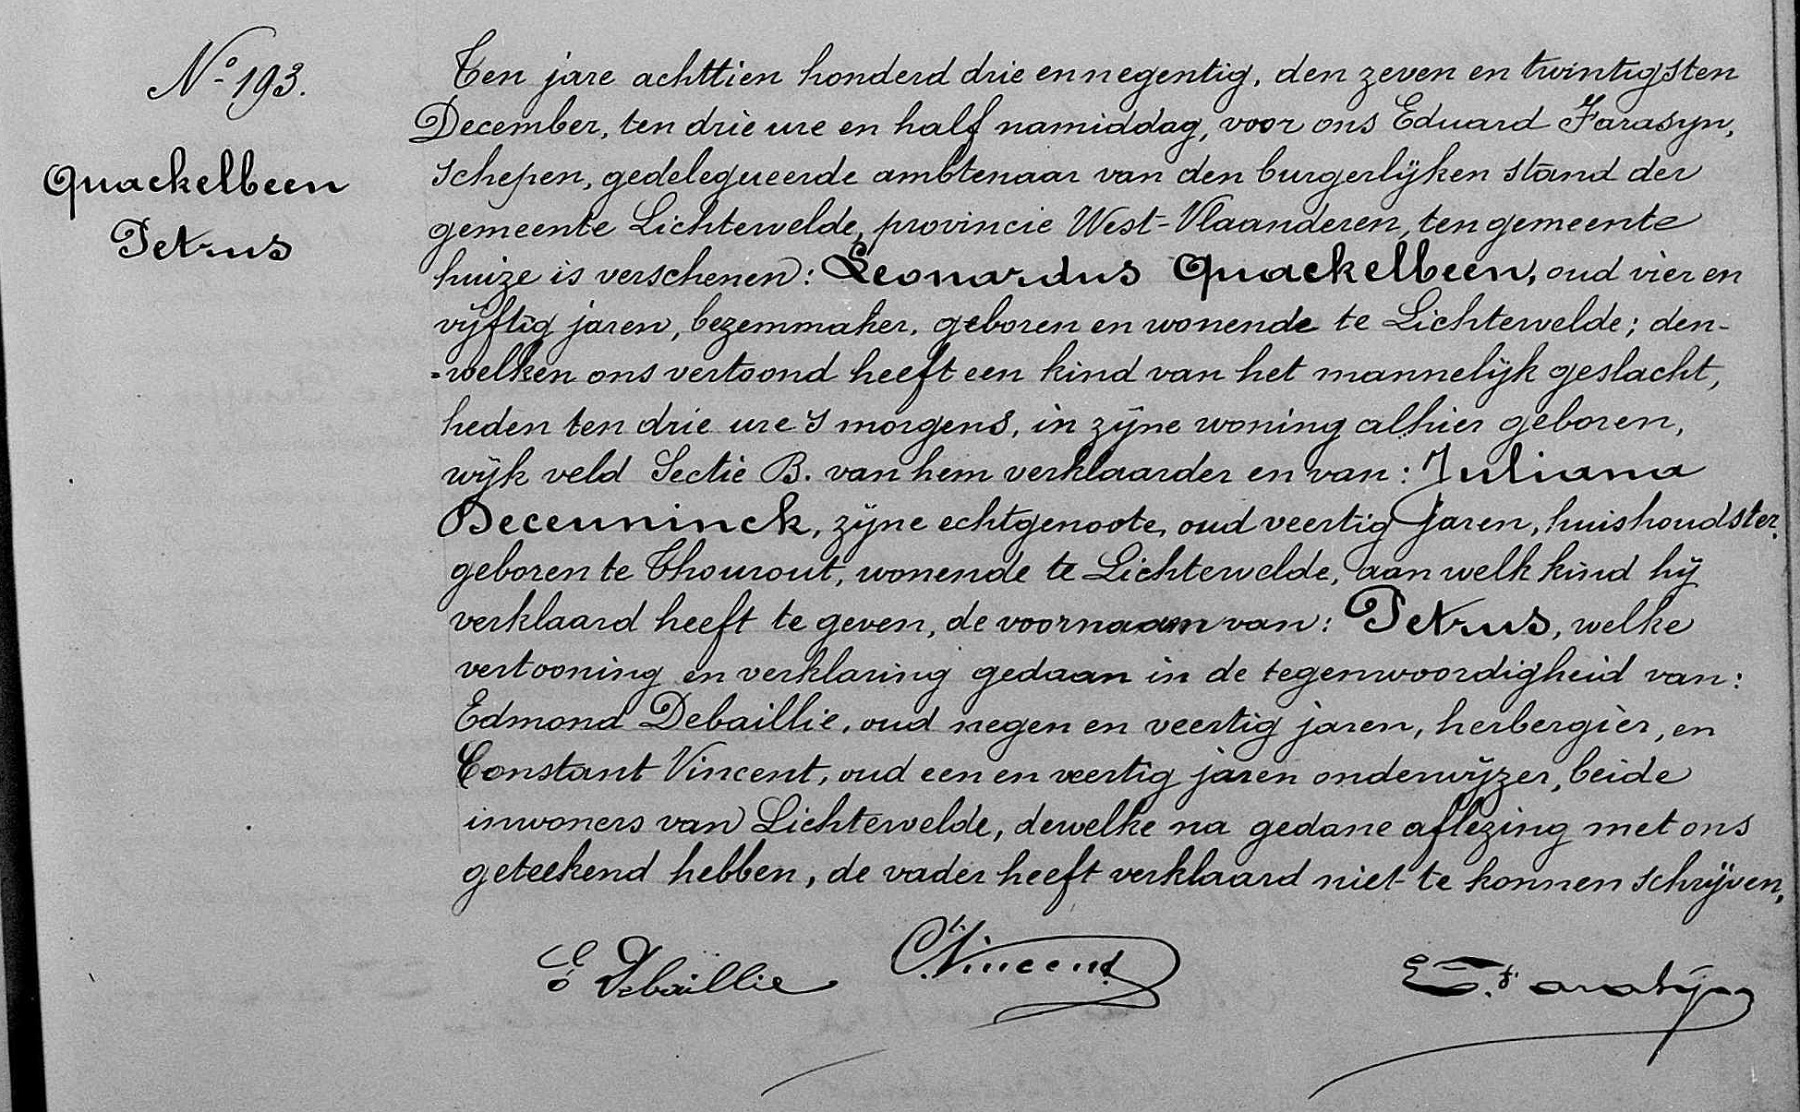 No 193.
Quackelbeen
Petrus
Ten jare achttien honderd drie en negentig, den zeven en twintigsten
December, ten drie ure en half namiddag, voor ons Eduard Farasyn,
schepen, gedelegueerde ambtenaar van den burgerlijken stand der
gemeente Lichtervelde, provincie West-Vlaanderen, ten gemeente
huize is verschenen: Leonardus Quackelbeen, oud vier en
vijftig jaren, bezemmaker, geboren en wonende te Lichtervelde; den-
-welken ons vertoond heeft een kind van het mannelijk geslacht,
heden ten drie ure 's morgens, in zijne woning alhier geboren,
wijk veld Sectie B. van hem verklaarder en van: Juliana
Deceuninck, zijne echtgenoote, oud veertig jaren, huishoudster,
geboren te Thourout, wonende te Lichtervelde, aan welk kind hij
verklaard heeft te geven, de voornaam van: Petrus, welke
vertooning en verklaring gedaan in de tegenwoordigheid van:
Edmond Debaillie, oud negen en veertig jaren, herbergier, en
Constant Vincent, oud een en veertig jaren onderwijzer, beide
inwoners van Lichtervelde, dewelke na gedane aflezing met ons
geteekend hebben, de vader heeft verklaard niet te konnen schrijven,
E Debaillie C. Vincent E. Farasijn